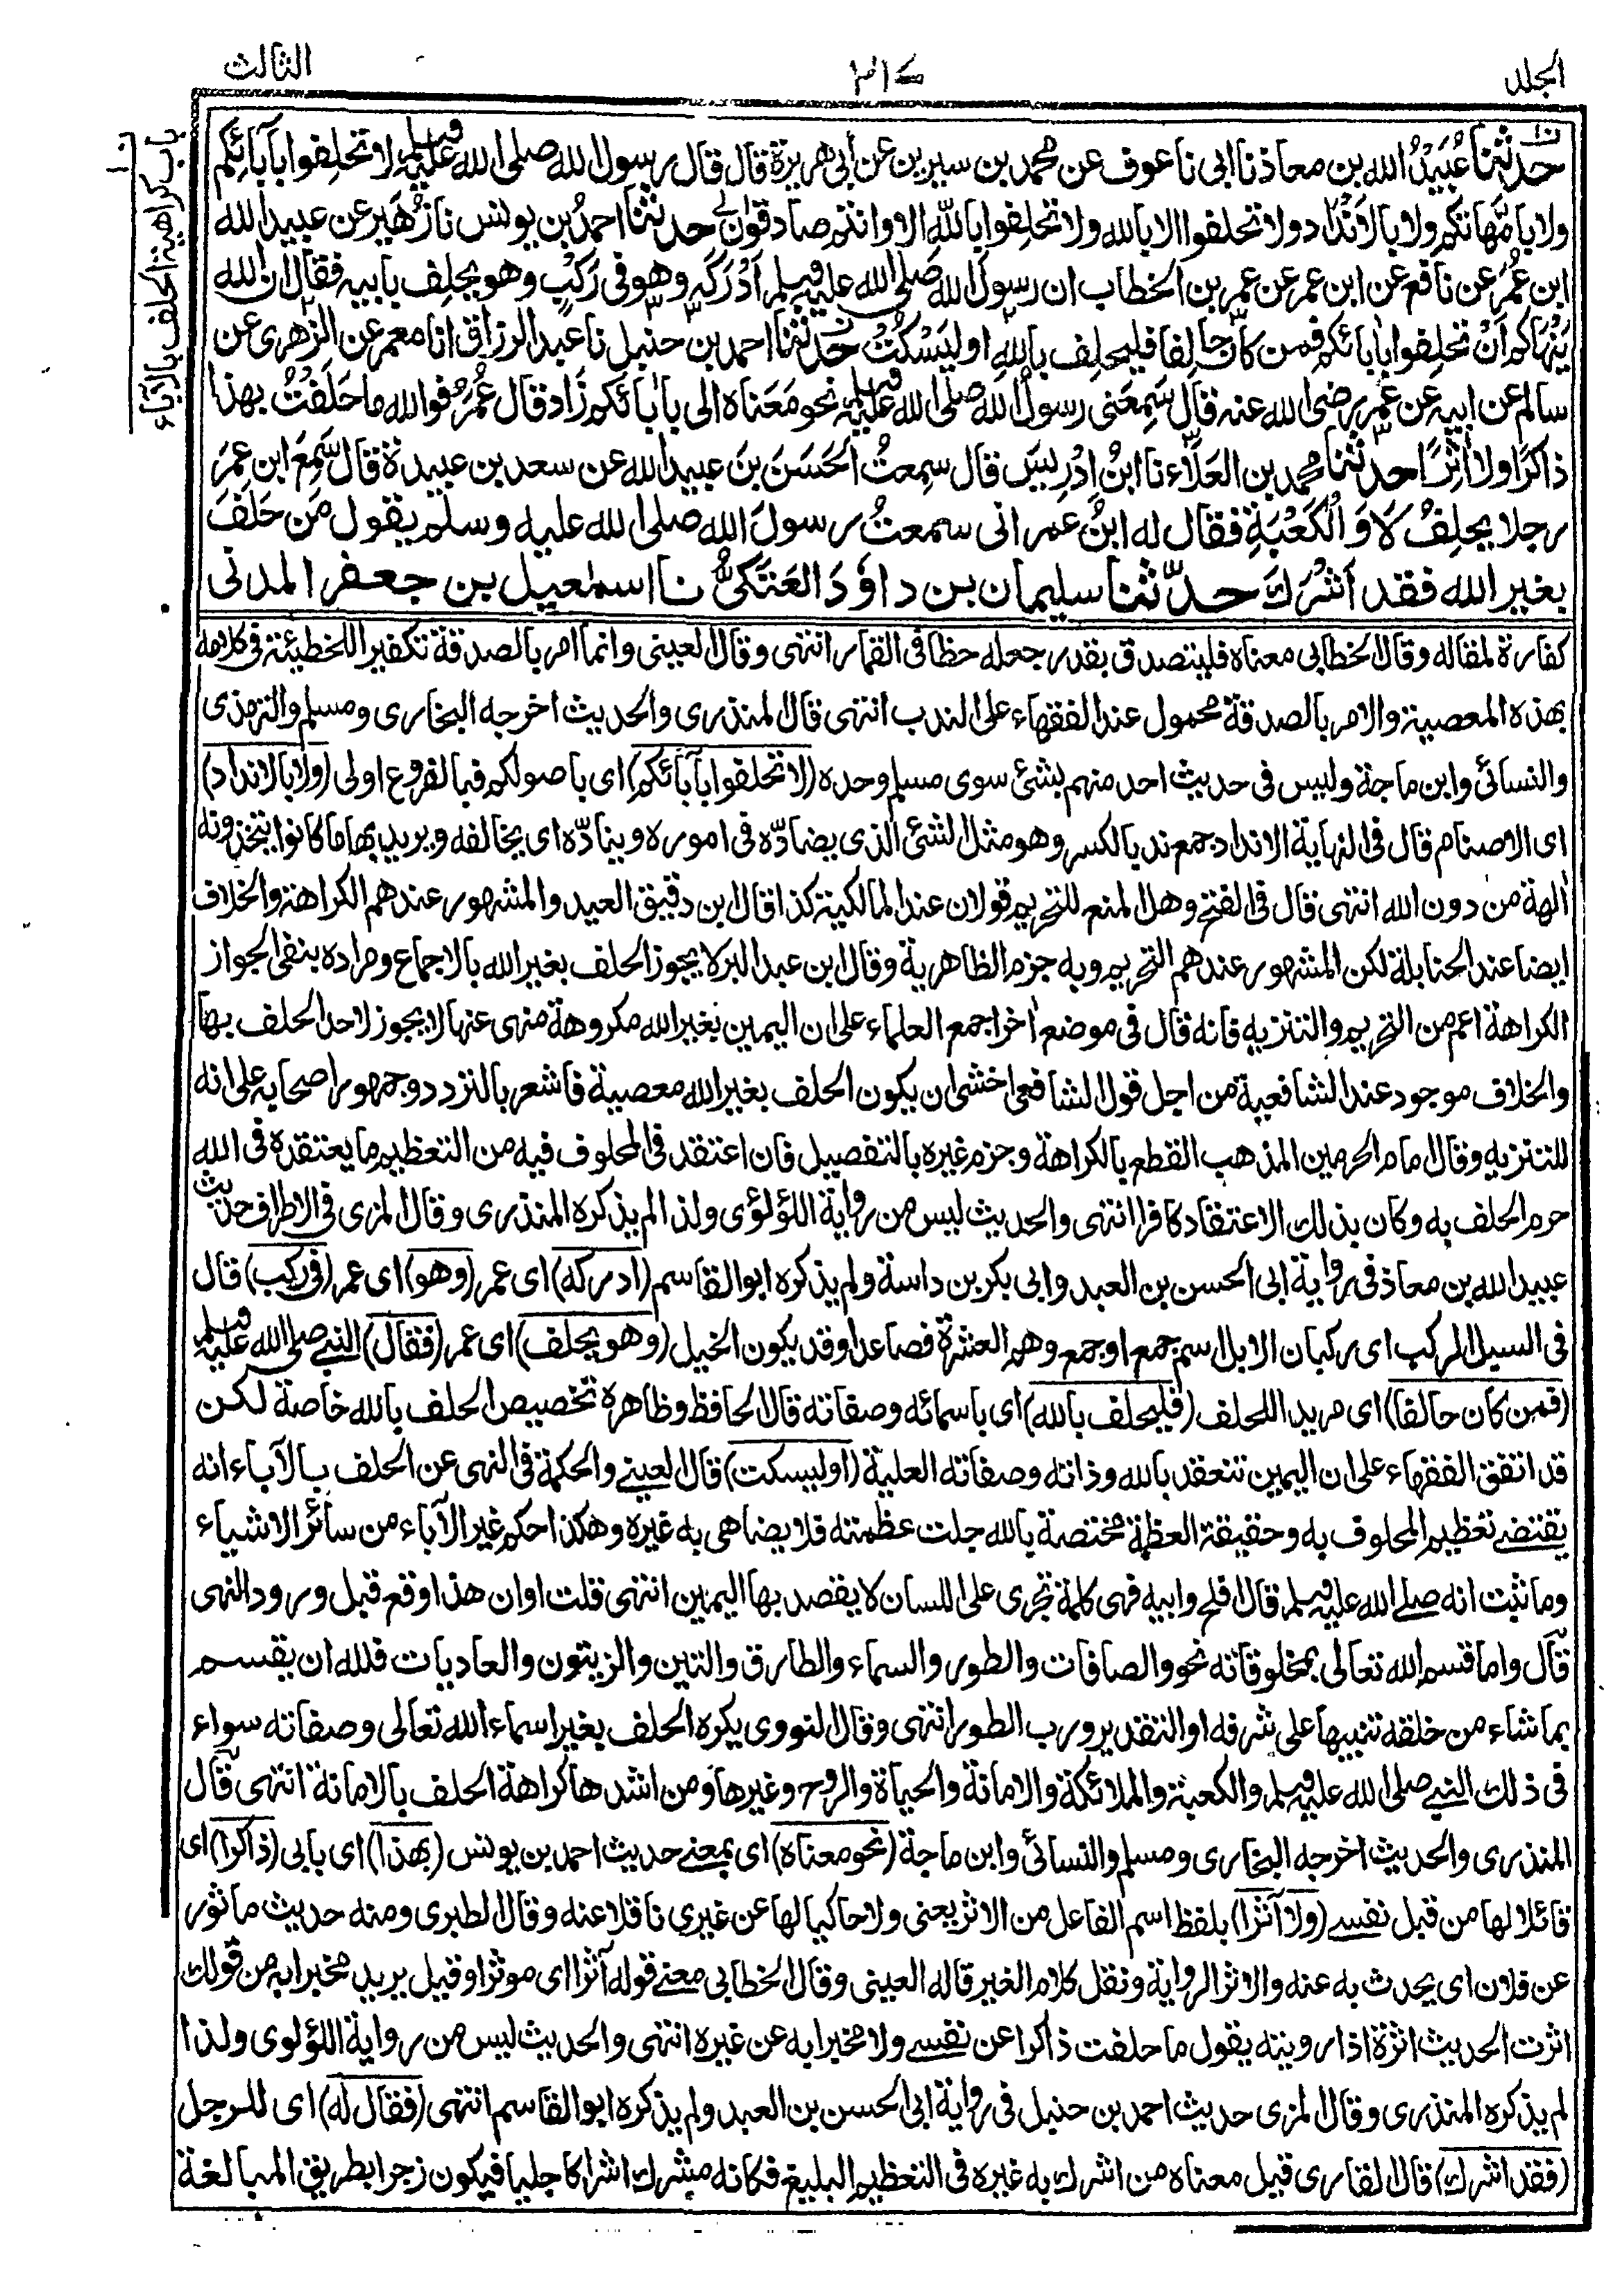 المجلد
٢١٧
الثالث
باب كراهية الحلف بالآباء
حدثنا عُبَيْدُ الله بن معاذ نا ابى نا عوف عن محمد بن سيرين عن أبى هريرة قال قال رسول الله صلى الله عليه وسلم لا تحلِفوا بآبائِكم
ولا بامَّهاتكم ولا بالاَنْداد ولا تحلفوا الا بالله ولا تحلِفوا بالله الا وانتم صادقون حدثنا احمدُ بن يونس نا زُهَير عن عبيد الله
ابن عُمَر عن نافع عن ابن عمر عن عمر بن الخطاب ان رسولَ الله صلى الله عليه وسلم اَدْرَكَه وهو فى رَكْبٍ وهو يحلِف بابيه فقال ان الله
يَنْهَاكم اَنْ تحلِفوا بابائكم فمن كان حالِفا فليحلِف بالله او ليَسْكُتْ حدثنا احمد بن حنبل نا عبد الرزاق انا معمر عن الزهرى عن
سالم عن ابيه عن عمر رضى الله عنه قال سَمِعَنى رسولُ الله صلى الله عليه وسلم نحو مَعَناه الى بابَائكم زَاد قال عُمَرُ فوالله ما حَلَفتُ بهذا
ذاكرًا ولا اٰثِرًا حدثنا محمد بن العَلاَء نا ابنُ اِدْرِيسَ قال سمِعتُ الحَسَنَ بنَ عبيد الله عن سعد بن عبيدة قال سَمِعَ ابن عمَرَ
رجلا يحلِفُ لاَ وَالْكَعْبَةِ فقال له ابنُ عمر انى سمعتُ رسولَ الله صلى الله عليه وسلم يقول مَن حَلَفَ
بغير الله فقد اَشْرَكَ حدّثنا سليمان بن داؤدَ العَتَكىُّ نا اسمٰعيل بن جعفر المدنى
كفارة لمقاله وقال الخطابى معناه فليتصدق بقدر جعله حظا فى القمار انتهى وقال العينى وانما امر بالصدقة تكفيرا للخطيئة فى كلامه
بهذه المعصية والامر بالصدقة محمول عند الفقهاء على الندب انتهى قال المنذرى والحديث اخرجه البخارى ومسلم والترمذى
والنسائى وابن ماجة وليس فى حديث احد منهم بشئ سوى مسلم وحده (لا تحلفوا بآبائكم) اى باصولكم فبالفروع اولى (ولا بالانداد)
اى الاصنام قال فى النهاية الانداد جمع ند بالكسر وهو مثل الشئ الذى يضادّه فى اموره وينادّه اى يخالفه ويريد بها ما كانوا يتخذونه
الهة من دون الله انتهى قال فى الفتح وهل المنع للتحريم قولان عند المالكية كذا قال ابن دقيق العيد والمشهور عندهم الكراهة والخلاف
ايضا عند الحنابلة لكن المشهور عندهم التحريم وبه جزم الظاهرية وقال ابن عبد البر لا يجوز الحلف بغير الله بالاجماع ومراده بنفى الجواز
الكراهة اعم من التحريم والتنزيه فانه قال فى موضع اٰخر اجمع العلماء على ان اليمين بغير الله مكروهة منهى عنها لا يجوز لاحد الحلف بها
والخلاف موجود عند الشافعية من اجل قول الشافعى اخشى ان يكون الحلف بغير الله معصية فاشعر بالتردد وجمهور اصحابه على انه
للتنزيه وقال امام الحرمين المذهب القطع بالكراهة وجزم غيره بالتفصيل فان اعتقد فى المحلوف فيه من التعظيم ما يعتقده فى الله
حرم الحلف به وكان بذلك الاعتقاد كافرا انتهى والحديث ليس من رواية اللؤلؤى ولذا لم يذكره المنذرى وقال المزى فى الاطراف حديث
عبيد الله بن معاذ فى رواية ابى الحسن بن العبد وابى بكر بن داسة ولم يذكره ابو القاسم (ادركه) اى عمر (وهو) اى عمر (فى ركب) قال
فى السيل المركب اى ركبان الابل اسم جمع او جمع وهم العشرة فصاعدا وقد يكون الخيل (وهو يحلف) اى عمر (فقال) النبى صلى الله عليه وسلم
(فمن كان حالفا) اى مريدا للحلف (فليحلف بالله) اى باسمائه وصفاته قال الحافظ وظاهره تخصيص الحلف بالله خاصة لكن
قد اتفق الفقهاء على ان اليمين تنعقد بالله وذاته وصفاته العلية (او ليسكت) قال العينى والحكمة فى النهى عن الحلف بالآباء انه
يقتضى تعظيم المحلوف به وحقيقة العظمة مختصة بالله جلت عظمته فلا يضاهى به غيره وهكذا حكم غير الآباء من سائر الاشياء
وما ثبت انه صلى الله عليه وسلم قال افلح وابيه فهى كلمة تجرى على اللسان لا يقصد بها اليمين انتهى قلت او ان هذا وقع قبل ورود النهى
قال واما قسم الله تعالى بمخلوقاته نحو والصافات والطور والسماء والطارق والتين والزيتون والعاديات فلله ان يقسم
بما شاء من خلقه تنبيها على شرفه او التقدير ورب الطور انتهى وقال النووى يكره الحلف بغير اسماء الله تعالى وصفاته سواء
فى ذلك النبى صلى الله عليه وسلم والكعبة والملائكة والامانة والحياة والروح وغيرها ومن اشدها كراهة الحلف بالامانة انتهى قال
المنذرى والحديث اخرجه البخارى ومسلم والنسائى وابن ماجة (نحو معناه) اى بمعنى حديث احمد بن يونس (بهذا) اى بابى (ذاكرا) اى
قائلا لها من قبل نفسى (ولا آثرا) بلفظ اسم الفاعل من الاثر يعنى ولا حاكيا لها عن غيرى ناقلا عنه وقال الطبرى ومنه حديث ماثور
عن فلان اى يحدث به عنه والاثر الرواية ونقل كلام الغير قاله العينى وقال الخطابى معنى قوله آثرا اى موثرا وقيل يريد مخبرا به من قولك
اثرت الحديث اثرة اذا رويته يقول ما حلفت ذاكرا عن نفسى ولا مخبرا به عن غيره انتهى والحديث ليس من رواية اللؤلوى ولذا
لم يذكره المنذرى وقال المزى حديث احمد بن حنبل فى رواية ابى الحسن بن العبد ولم يذكره ابو القاسم انتهى (فقال له) اى للرجل
(فقد اشرك) قال القارى قيل معناه من اشرك به غيره فى التعظيم البليغ فكانه مشرك اشراكا جليا فيكون زجرا بطريق المبالغة